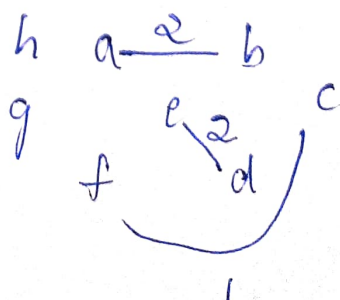 h a 2 b
g e 2 c
f d